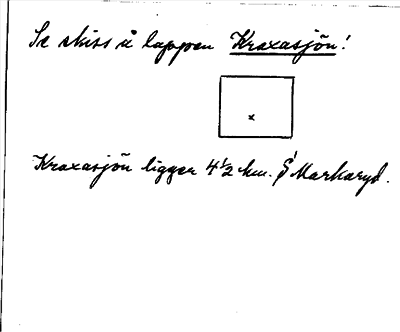 Se skiss å lappen Kraxasjön!
Kraxasjön ligger 4 1/2 km. S Markaryd.